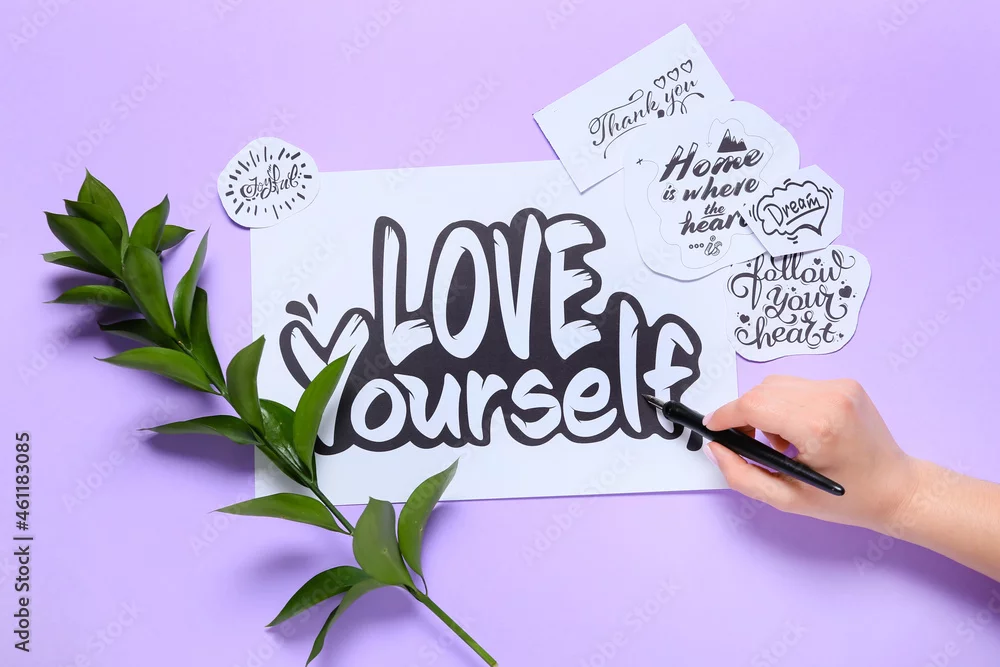 Joyful
Thank you
Home
is where
the
heart
...is
Dream
follow
your
heart
LOVE
Yourself
Adobe Stock | #461183085
Adobe Stock